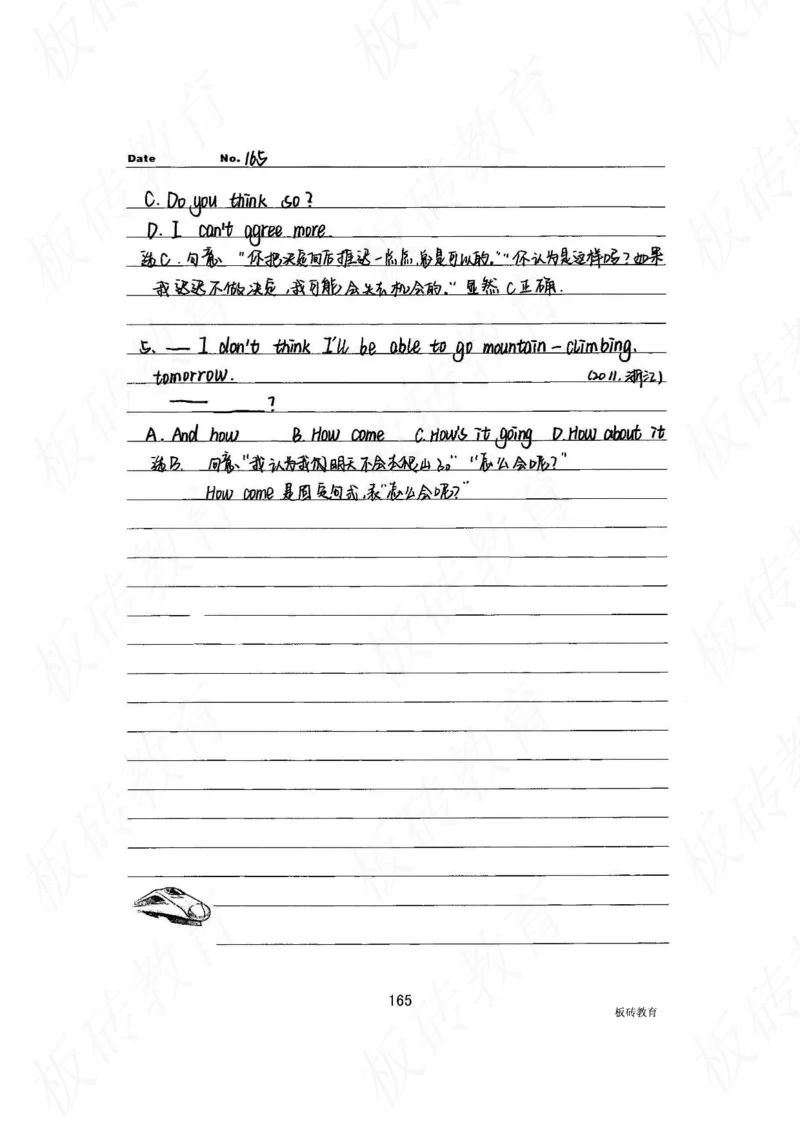 Date No. 165
C. Do you think so?
D. I can't agree more.
选C. 句意:"你把决定向后推迟一点点,总是可以的。""你认为是这样吗?如果
我迟迟不做决定,我可能会失去机会的。"显然C正确.
5. — I don't think I'll be able to go mountain-climbing.
tomorrow. (2011.浙江)
— ____?
A. And how B. How come C. How's it going D. How about it
选B. 句意:"我认为我们明天不会去爬山了。""怎么会呢?"
How come 是固定句式,表"怎么会呢?"
165
板砖教育